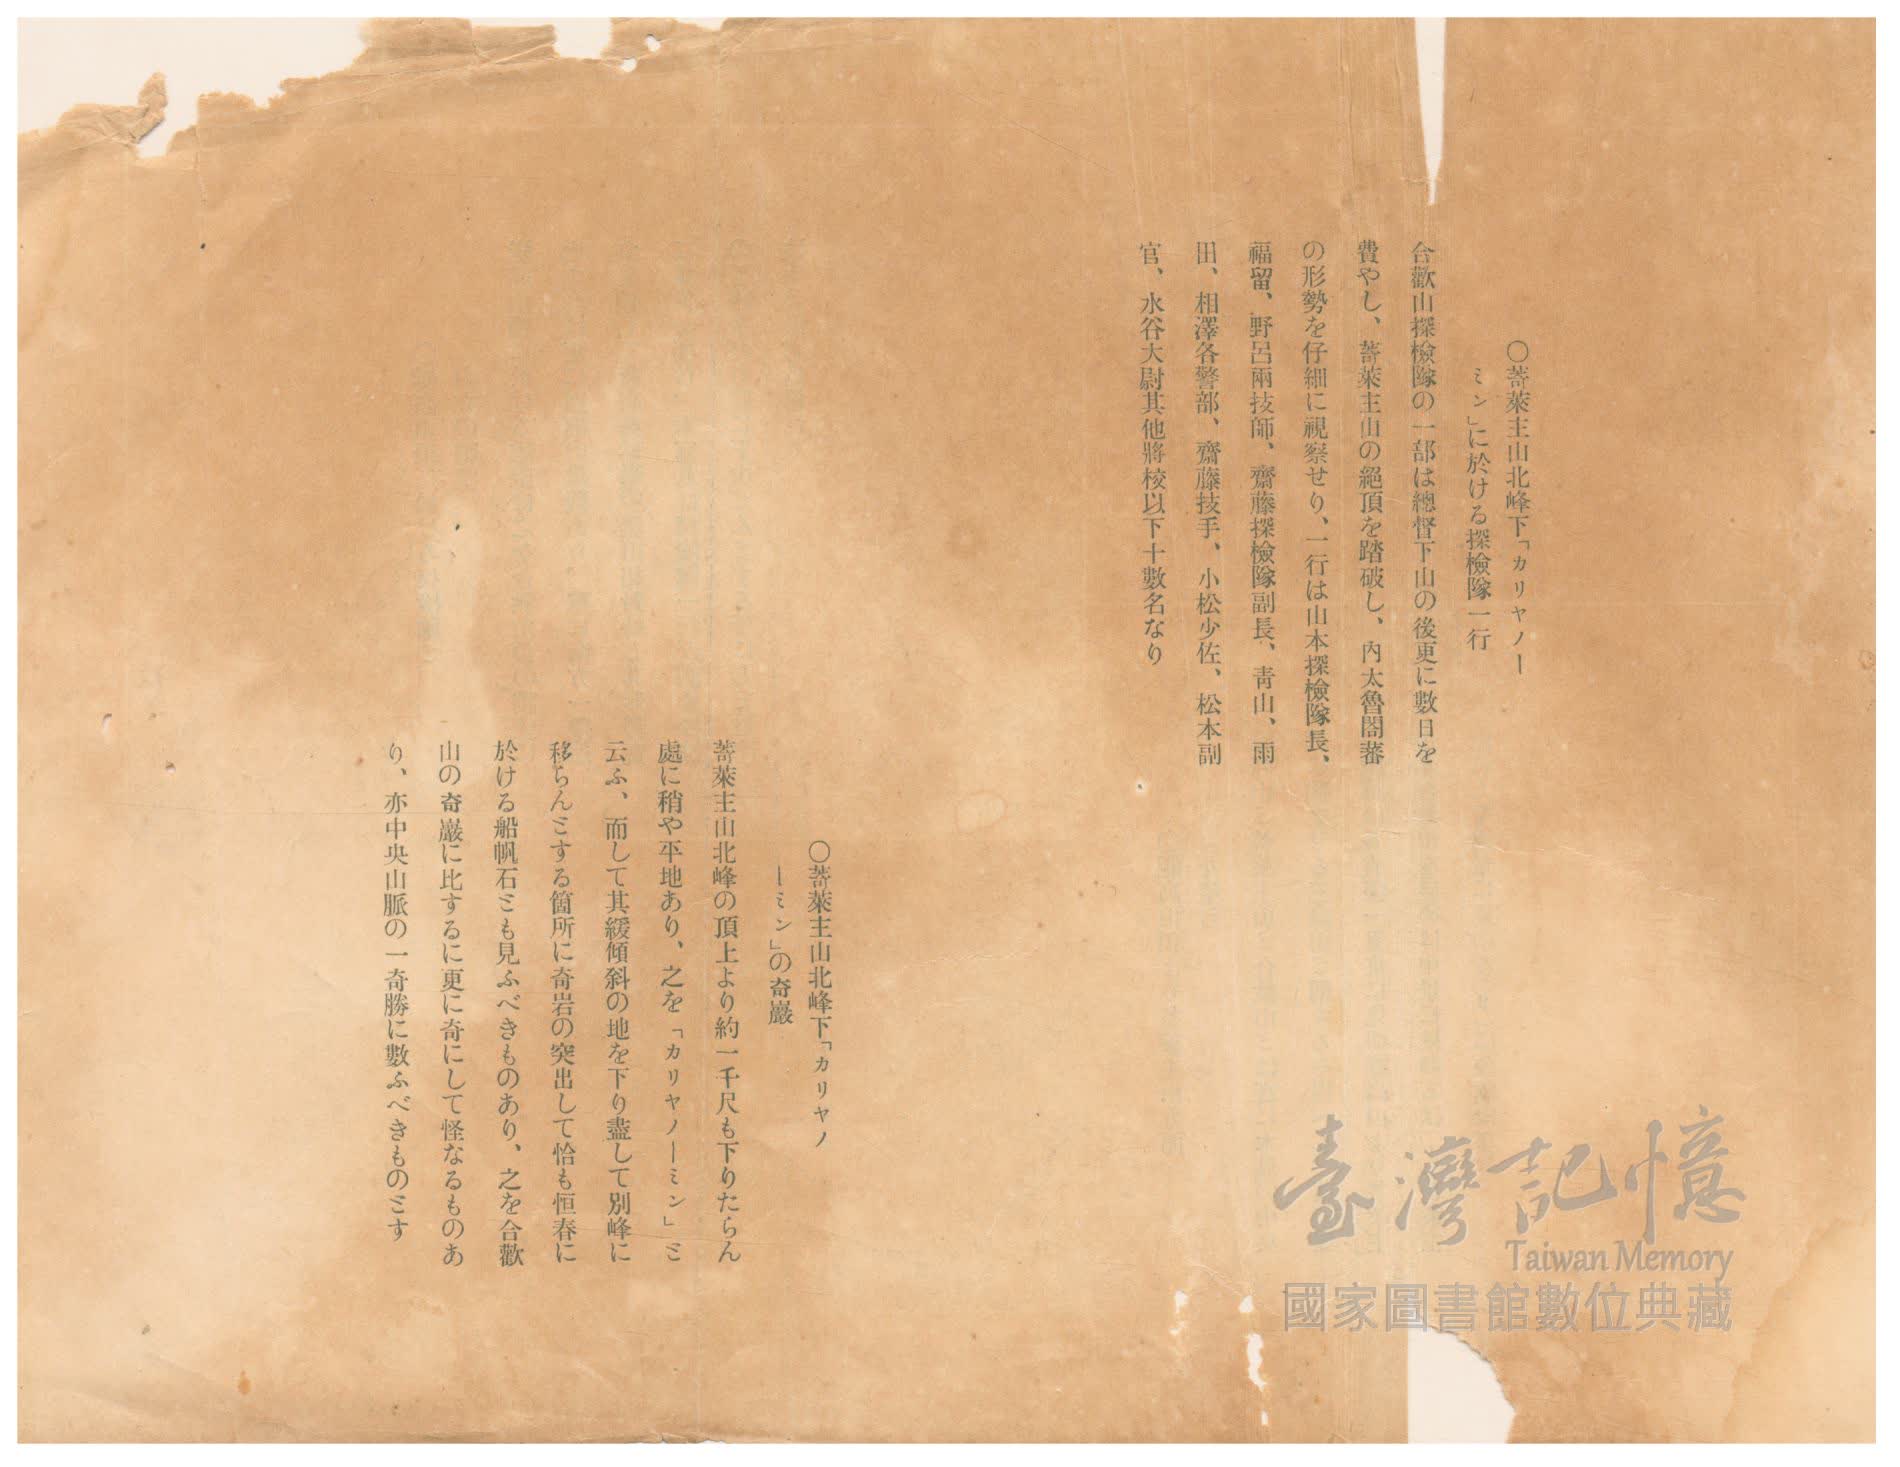 〇菩萊主山北峰下「カリヤノー
ミン」に於ける探檢隊一行
合歡山探檢隊の一部は總督下山の後更に數日を
費やし、菩萊主山の絕頂を踏破し、內太魯閣蕃
の形勢を仔細に視察せり、一行は山本探檢隊長、
福留、野呂兩技師、齋藤探檢隊副長、靑山、雨
田、相澤各警部、齋藤技手、小松少佐、松本副
官、水谷大尉其他將校以下十數名なり
〇菩萊主山北峰下「カリヤノ
ーミン」の奇巖
菩萊主山北峰の頂上より約一千尺も下りたらん
處に稍や平地あり、之を「カリヤノーミン」ミ
云ふ、而して其緩傾斜の地を下り盡して別峰に
移らんミする箇所に奇岩の突出して恰も恒春に
於ける船帆石ミも見ふべきものあり、之を合歡
山の奇巖に比するに更に奇にして怪なるものあ
り、亦中央山脈の一奇勝に數ふべきものミす
臺灣記憶
Taiwan Memory
國家圖書館數位典藏